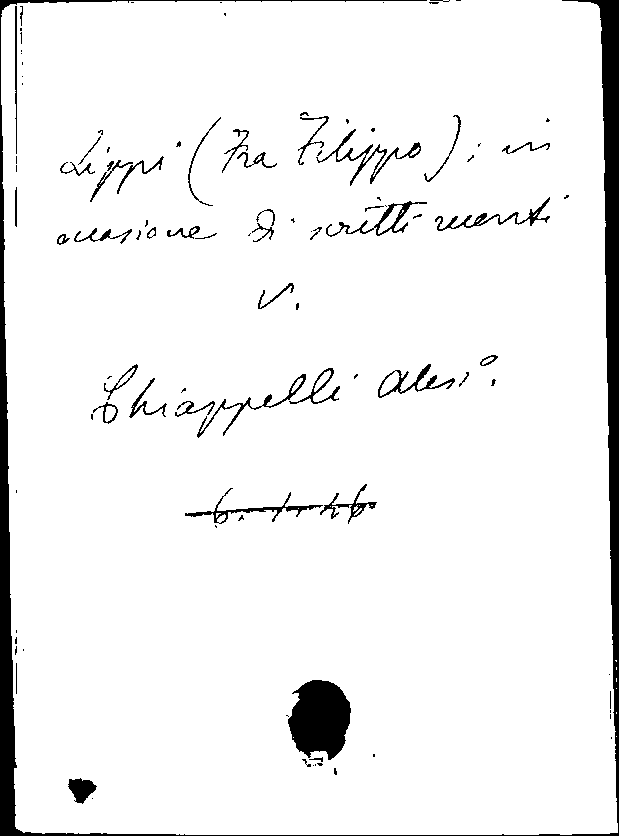 Lippi (Fra Filippo); in
occasione di scritti recenti
V.
Chiappelli Aless°.
6. 1. 26.